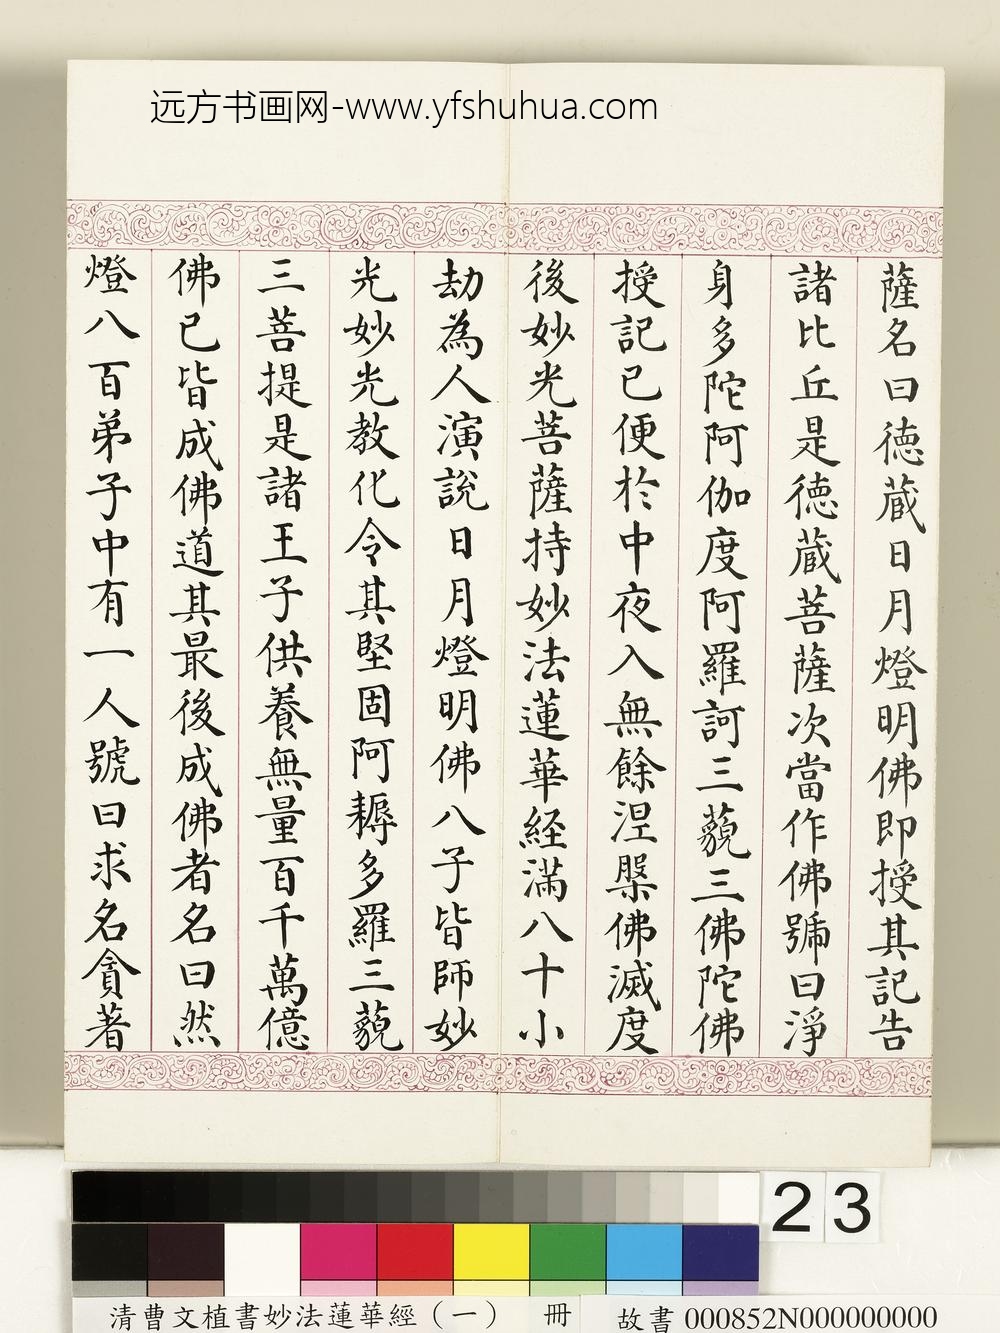 远方书画网-www.yfshuhua.com
薩名曰德藏日月燈明佛即授其記告
諸比丘是德藏菩薩次當作佛號曰淨
身多陀阿伽度阿羅訶三藐三佛陀佛
授記已便於中夜入無餘涅槃佛滅度
後妙光菩薩持妙法蓮華経滿八十小
劫為人演說日月燈明佛八子皆師妙
光妙光教化令其堅固阿耨多羅三藐
三菩提是諸王子供養無量百千萬億
佛已皆成佛道其最後成佛者名曰然
燈八百弟子中有一人號曰求名貪著
23
清曹文植書妙法蓮華經（一） 冊 故書 000852N000000000